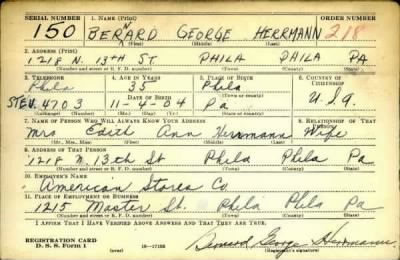 SERIAL NUMBER 1. NAME (Print) ORDER NUMBER
150 BERNARD GEORGE HERRMANN 218
(First) (Middle) (Last)
2. ADDRESS (Print)
1218 N. 13TH ST. PHILA PHILA PA
(Number and street or R. F. D. number) (Town) (County) (State)
3. TELEPHONE 4. AGE IN YEARS 5. PLACE OF BIRTH 6. COUNTRY OF CITIZENSHIP
Phila 35 Phila
DATE OF BIRTH (Town or county)
STEV. 4703 11-4-04 Pa U.S.A
(Exchange) (Number) (Mo.) (Day) (Yr.) (State or country)
7. NAME OF PERSON WHO WILL ALWAYS KNOW YOUR ADDRESS 8. RELATIONSHIP OF THAT PERSON
Mrs Edith Ann Herrmann Wife
(Mr., Mrs., Miss) (First) (Middle) (Last)
9. ADDRESS OF THAT PERSON
1218 N. 13th St Phila Phila Pa
(Number and street or R. F. D. number) (Town) (County) (State)
10. EMPLOYER'S NAME
American Stores Co.
11. PLACE OF EMPLOYMENT OR BUSINESS
1215 Master St. Phila Phila Pa
(Number and street or R. F. D. number) (Town) (County) (State)
I AFFIRM THAT I HAVE VERIFIED ABOVE ANSWERS AND THAT THEY ARE TRUE.
REGISTRATION CARD
D. S. S. Form 1 (over) 16—17105 Bernard George Herrmann
(Registrant's signature)